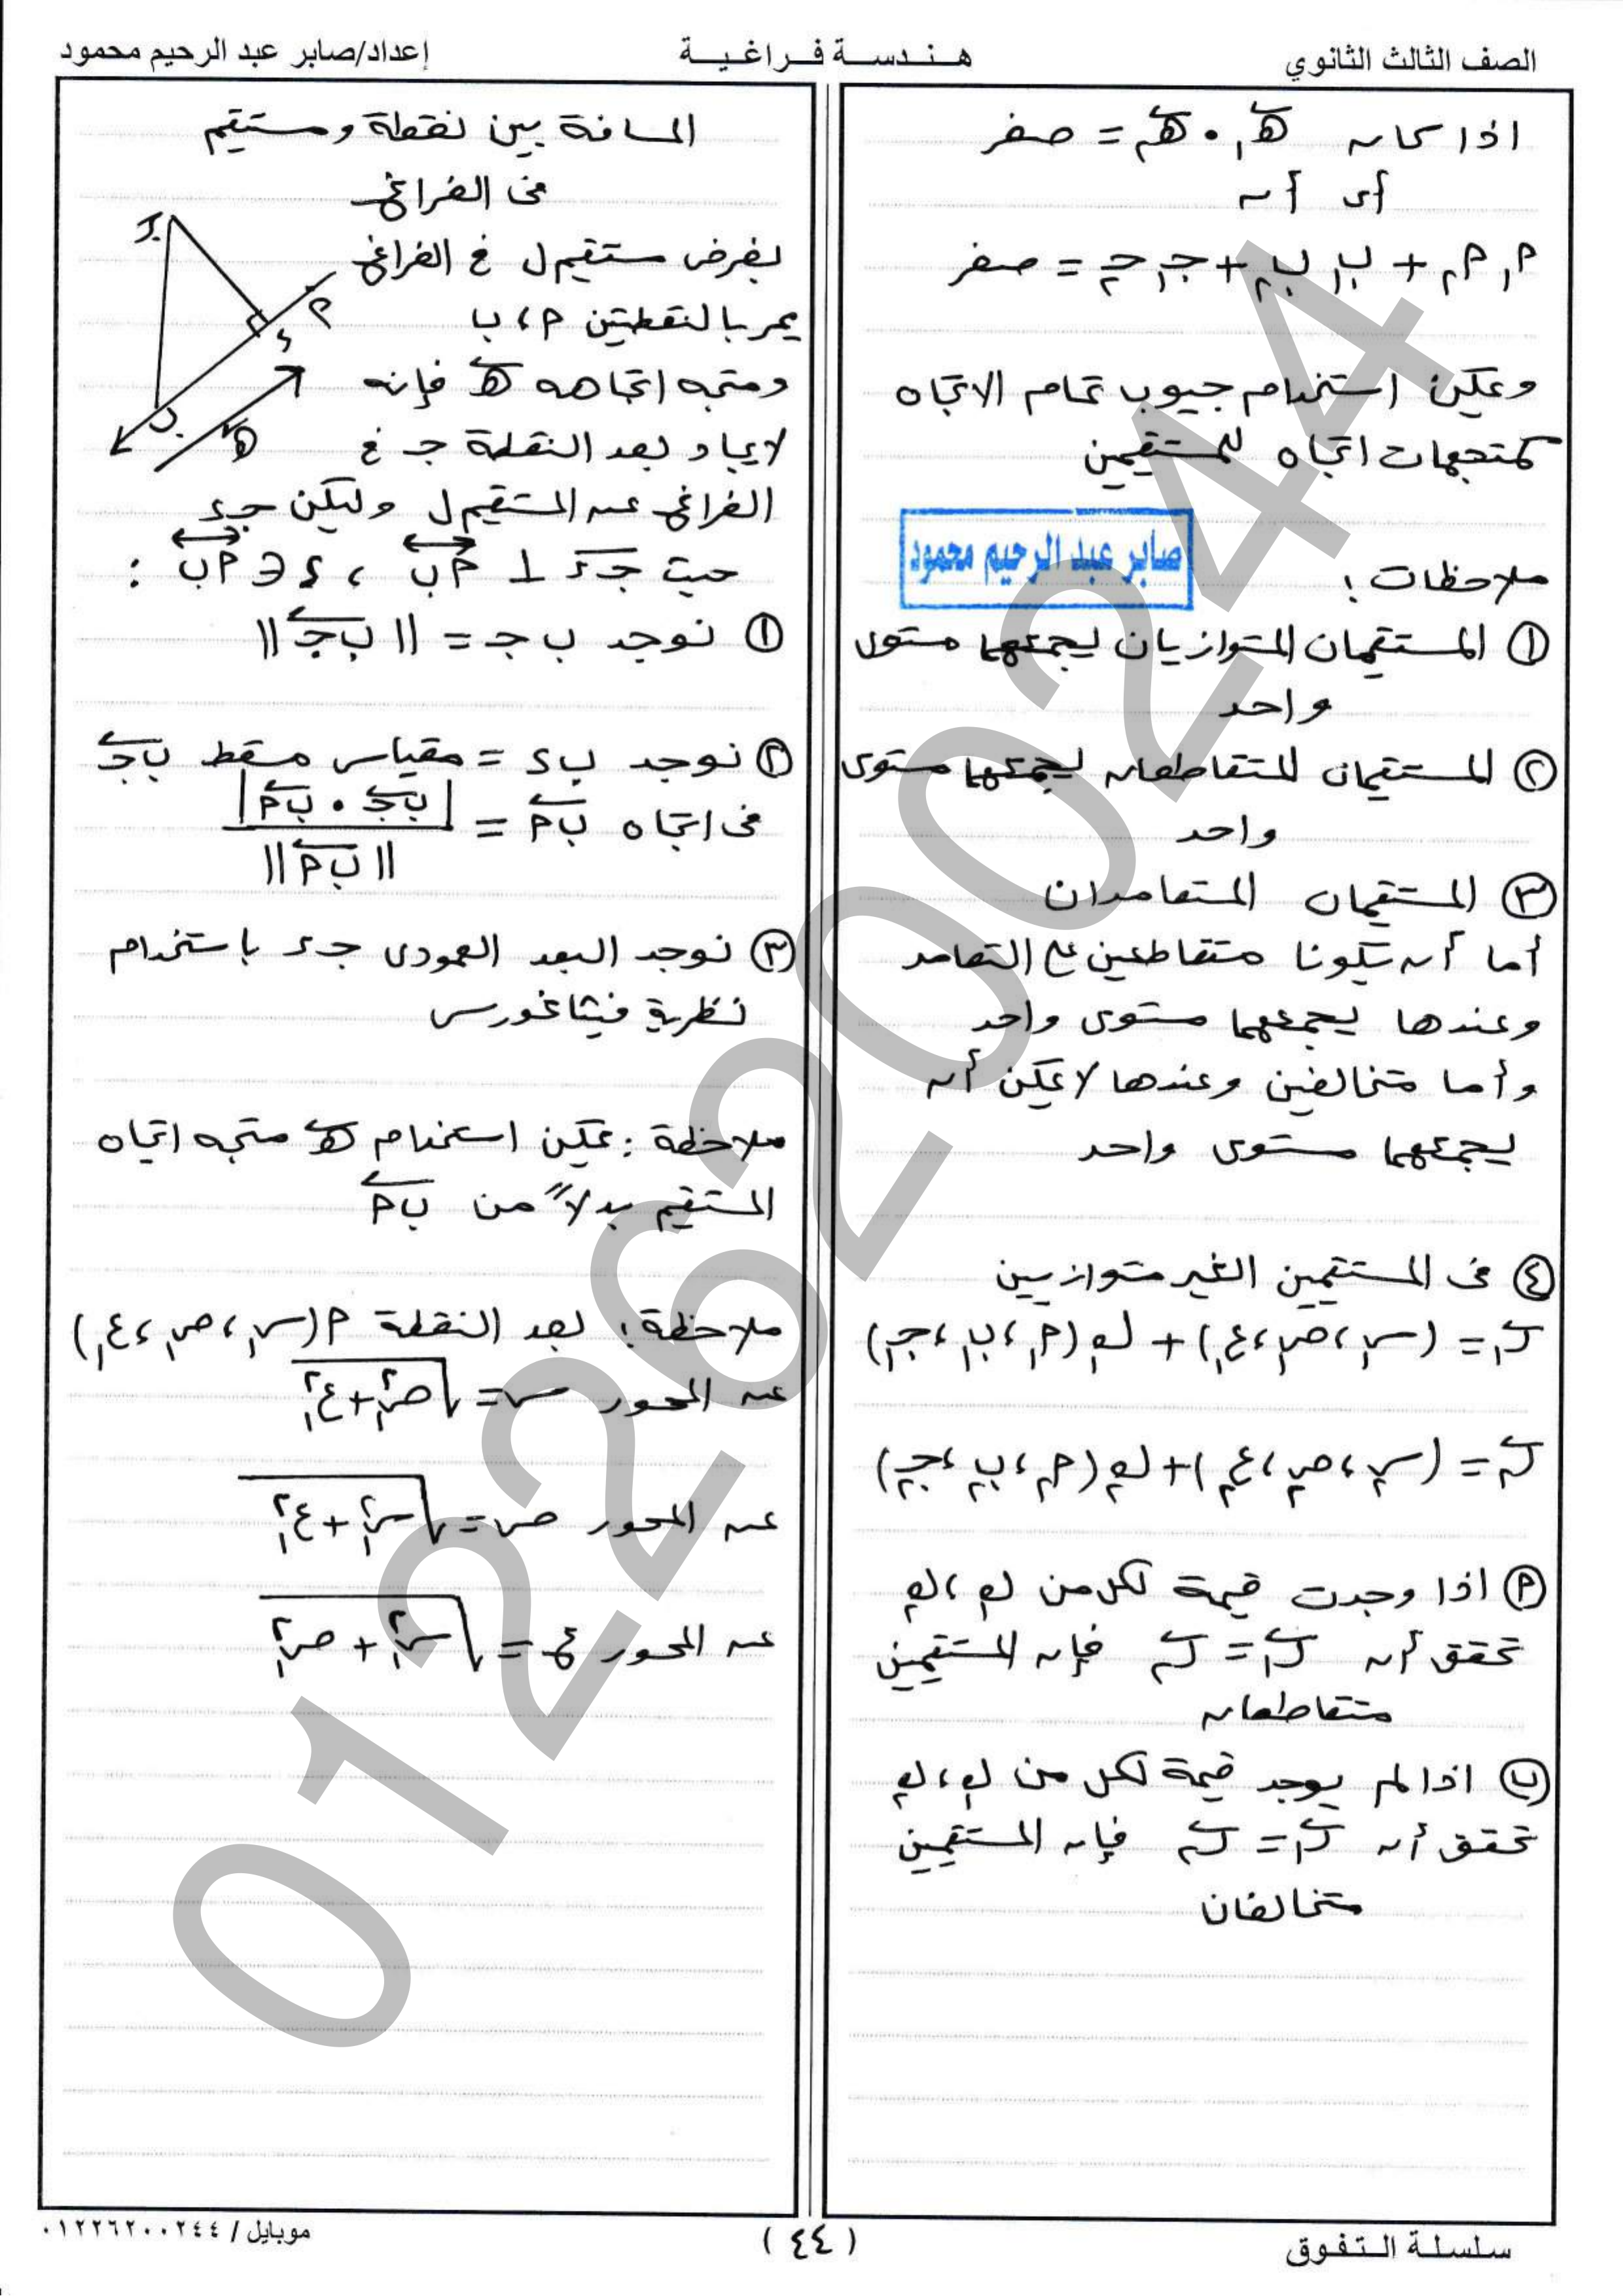 الصف الثالث الثانوي
هـنـدسـة فـراغـيـة
إعداد/صابر عبد الرحيم محمود
اذا كان هـ₁ • هـ₂ = صفر
أى أن
م₁ م₂ + ب₁ ب₂ + جـ₁ جـ₂ = صفر
ويمكن استخدام جيوب تمام الاتجاه
كمتجهات اتجاه للمستقيمين
صابر عبد الرحيم محمود
ملاحظات :
① المستقيمان المتوازيان يجمعهما مستوى
واحد
② المستقيمان المتقاطعان يجمعهما مستوى
واحد
③ المستقيمان المتعامدان
أما أن يكونا متقاطعين على التعامد
وعندها يجمعهما مستوى واحد
وأما متخالفين وعندها لا يمكن أن
يجمعهما مستوى واحد
④ فى المستقيمين الغير متوازيين
ر₁ = (س₁ ، ص₁ ، ع₁) + ك₁ (م₁ ، ب₁ ، جـ₁)
ر₂ = (س₂ ، ص₂ ، ع₂) + ك₂ (م₂ ، ب₂ ، جـ₂)
(م) اذا وجدت قيمة لكل من ك₁ ، ك₂
تحقق أن ر₁ = ر₂ فإن المستقيمين
متقاطعان
(ب) اذا لم يوجد قيمة لكل من ك₁ ، ك₂
تحقق أن ر₁ = ر₂ فإن المستقيمين
متخالفان
المسافة بين نقطة ومستقيم
فى الفراغ
بفرض مستقيم ل فى الفراغ
يمر بالنقطتين م ، ب
ومتجه اتجاهه هـ فإنه
لايجاد بعد النقطة جـ فى
الفراغ عن المستقيم ل وليكن جـ ء
حيث جـ ء ⊥ م ب ، ء ∈ م ب :
① نوجد ب جـ = || ب جـ ||
② نوجد ب ء = مقياس مسقط ب جـ
فى اتجاه ب م = | ب جـ • ب م | / || ب م ||
③ نوجد البعد العمودى جـ ء باستخدام
نظرية فيثاغورس
ملاحظة : يمكن استخدام هـ متجه اتجاه
المستقيم بدلاً من ب م
ملاحظة : بعد النقطة م (س₁ ، ص₁ ، ع₁)
عن المحور س = √(ص₁² + ع₁²)
عن المحور ص = √(س₁² + ع₁²)
عن المحور ع = √(س₁² + ص₁²)
جـ
م
ء
ب
هـ
01226200244
سلسلة التفوق
( ٤٤ )
موبايل / ٠١٢٢٦٢٠٠٢٤٤